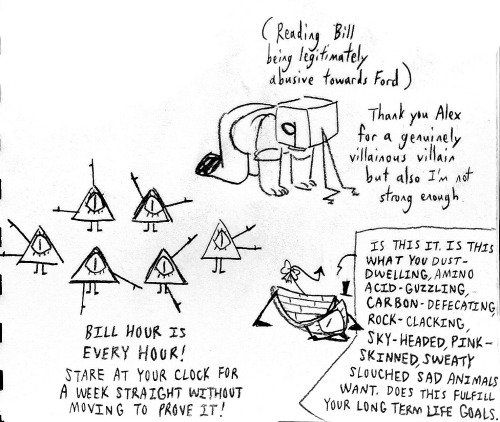 (Reading Bill
being legitimately
abusive towards Ford)
Thank you Alex
for a genuinely
villainous villain
but also I'm not
strong enough.
BILL HOUR IS
EVERY HOUR!
STARE AT YOUR CLOCK FOR
A WEEK STRAIGHT WITHOUT
MOVING TO PROVE IT!
IS THIS IT. IS THIS
WHAT YOU DUST-
DWELLING, AMINO
ACID-GUZZLING,
CARBON-DEFECATING
ROCK-CLACKING,
SKY-HEADED, PINK-
SKINNED, SWEATY
SLOUCHED SAD ANIMALS
WANT. DOES THIS FULFILL
YOUR LONG TERM LIFE GOALS.